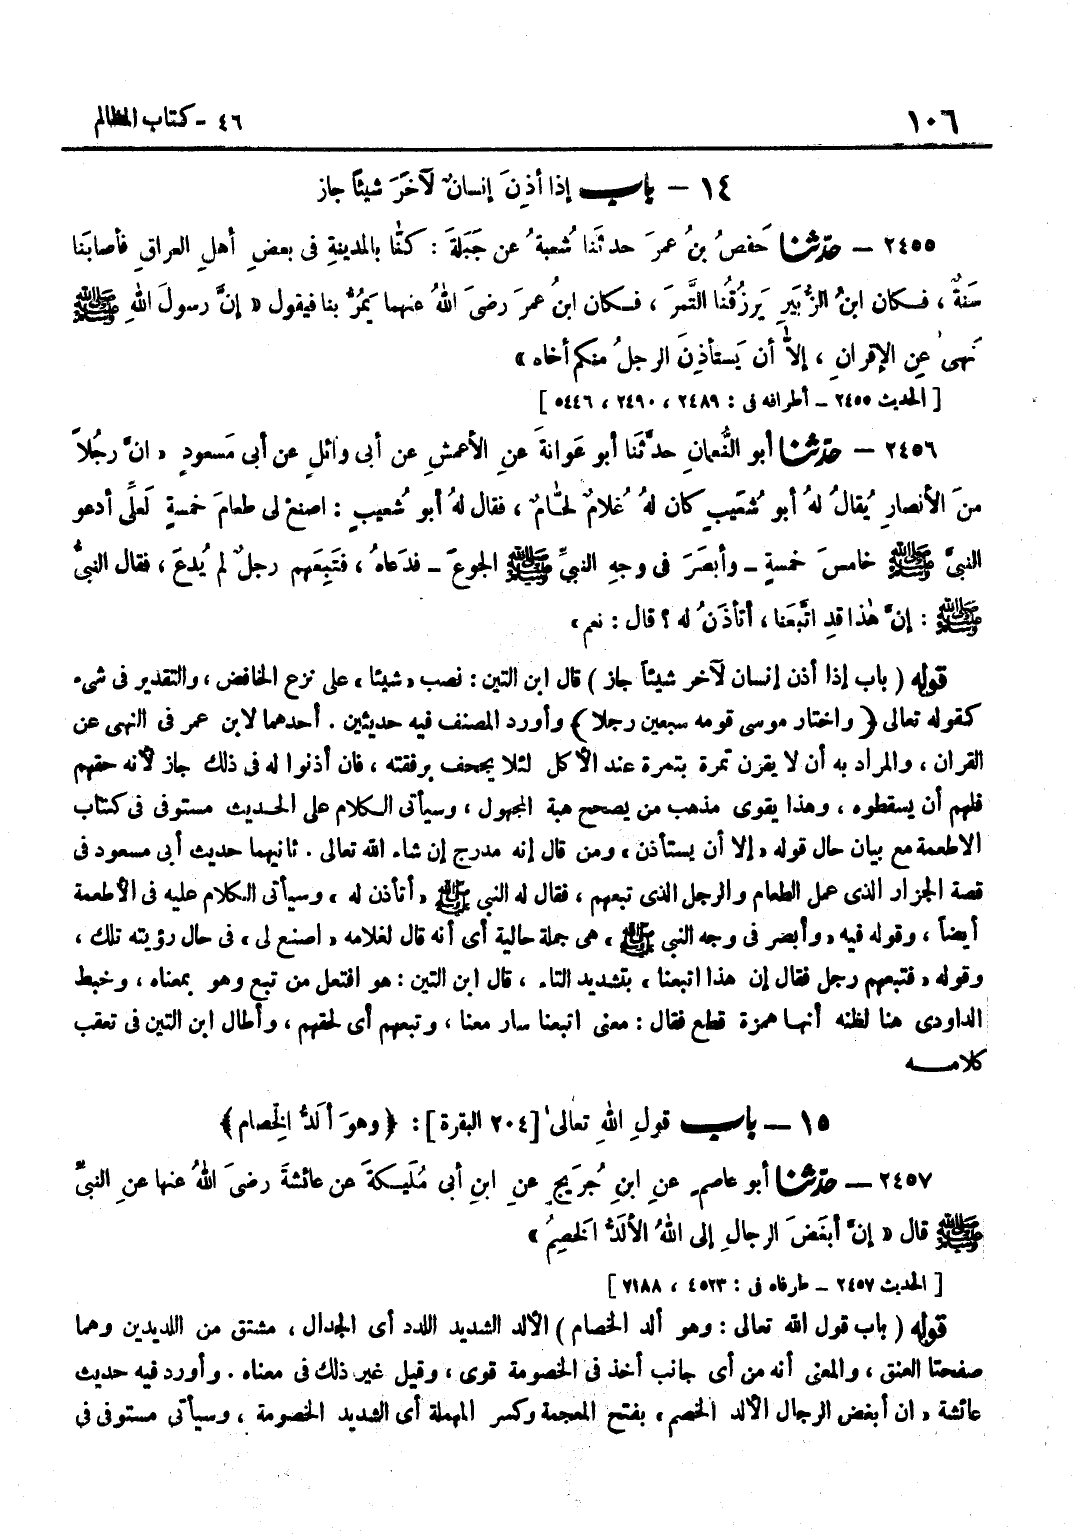 ١٠٦ ٤٦ - كتاب المظالم
١٤ - باب إذا أذِنَ إنسانٌ لآخرَ شيئاً جاز
٢٤٥٥ - حدّثنا حَفصُ بنُ عمرَ حدثَنا شُعبةُ عن جَبَلةَ : كنّا بالمدينةِ فى بعضِ أهلِ العراقِ فأصابَنا
سَنةٌ ، فكان ابنُ الزُّبَيرِ يَرزُقُنا التَّمرَ ، فكان ابنُ عمرَ رضىَ اللهُ عنهما يَمُرُّ بنا فيقول « إنَّ رسولَ اللهِ ﷺ
نَهىٰ عنِ الإقرانِ ، إلاّ أن يَستأذِنَ الرجلُ منكم أخاه »
[ الحديث ٢٤٥٥ - أطرافه فى : ٢٤٨٩ ، ٢٤٩٠ ، ٥٤٤٦ ]
٢٤٥٦ - حدّثنا أبو النُّعمانِ حدَّثَنا أبو عَوانةَ عنِ الأعمشِ عن أبى وائلٍ عن أبى مَسعودٍ « انَّ رجُلاً
منَ الأنصارِ يُقالُ لهُ أبو شُعَيبٍ كان لهُ غُلامٌ لحّامٌ ، فقال لهُ أبو شُعيبٍ : اصنعْ لى طعامَ خمسةٍ لَعلِّى أدعو
النبىَّ ﷺ خامسَ خمسةٍ - وأبصَرَ فى وجهِ النبىِّ ﷺ الجوعَ - فدَعاهُ ، فتَبِعَهم رجلٌ لم يُدعَ ، فقال النبىُّ
ﷺ : إنَّ هٰذا قدِ اتَّبَعَنا ، أتأذَنُ له ؟ قال : نعم »
قوله ( باب إذا أذن إنسان لآخر شيئاً جاز ) قال ابن التين : نصب « شيئا » على نزع الخافض ، والتقدير فى شىء
كقوله تعالى ﴿ واختار موسى قومه سبعين رجلا ﴾ وأورد المصنف فيه حديثين . أحدهما لابن عمر فى النهى عن
القران ، والمراد به أن لا يقرن تمرة بتمرة عند الأكل لئلا يجحف برفقته ، فان أذنوا له فى ذلك جاز لأنه حقهم
فلهم أن يسقطوه ، وهذا يقوى مذهب من يصحح هبة المجهول ، وسيأتى الكلام على الحديث مستوفى فى كتاب
الاطعمة مع بيان حال قوله « إلا أن يستأذن » ومن قال إنه مدرج إن شاء الله تعالى . ثانيهما حديث أبى مسعود فى
قصة الجزار الذى عمل الطعام والرجل الذى تبعهم ، فقال له النبى ﷺ « أتأذن له » وسيأتى الكلام عليه فى الأطعمة
أيضاً ، وقوله فيه « وأبصر فى وجه النبى ﷺ » هى جملة حالية أى أنه قال لغلامه « اصنع لى » فى حال رؤيته تلك ،
وقوله « فتبعهم رجل فقال إن هذا اتبعنا » بتشديد التاء ، قال ابن التين : هو افتعل من تبع وهو بمعناه ، وخبط
الداودى هنا لظنه أنها همزة قطع فقال : معنى اتبعنا سار معنا ، وتبعهم أى لحقهم ، وأطال ابن التين فى تعقب
كلامـــه
١٥ - باب قولِ اللهِ تعالىٰ [٢٠٤ البقرة] : ﴿ وهوَ ألَدُّ الخِصام ﴾
٢٤٥٧ - حدّثنا أبو عاصمٍ عنِ ابنِ جُرَيجٍ عنِ ابنِ أبى مُلَيكةَ عن عائشةَ رضىَ اللهُ عنها عنِ النبىِّ
ﷺ قال « إنَّ أبغَضَ الرجالِ إلى اللهِ الألَدُّ الخَصِمُ »
[ الحديث ٢٤٥٧ - طرفاه فى : ٤٥٢٣ ، ٧١٨٨ ]
قوله ( باب قول الله تعالى : وهو ألد الخصام ) الألد الشديد اللدد أى الجدال ، مشتق من اللديدين وهما
صفحتا العنق ، والمعنى أنه من أى جانب أخذ فى الخصومة قوى ، وقيل غير ذلك فى معناه . وأورد فيه حديث
عائشة « ان أبغض الرجال الألد الخصم » بفتح المعجمة وكسر المهملة أى الشديد الخصومة ، وسيأتى مستوفى فى